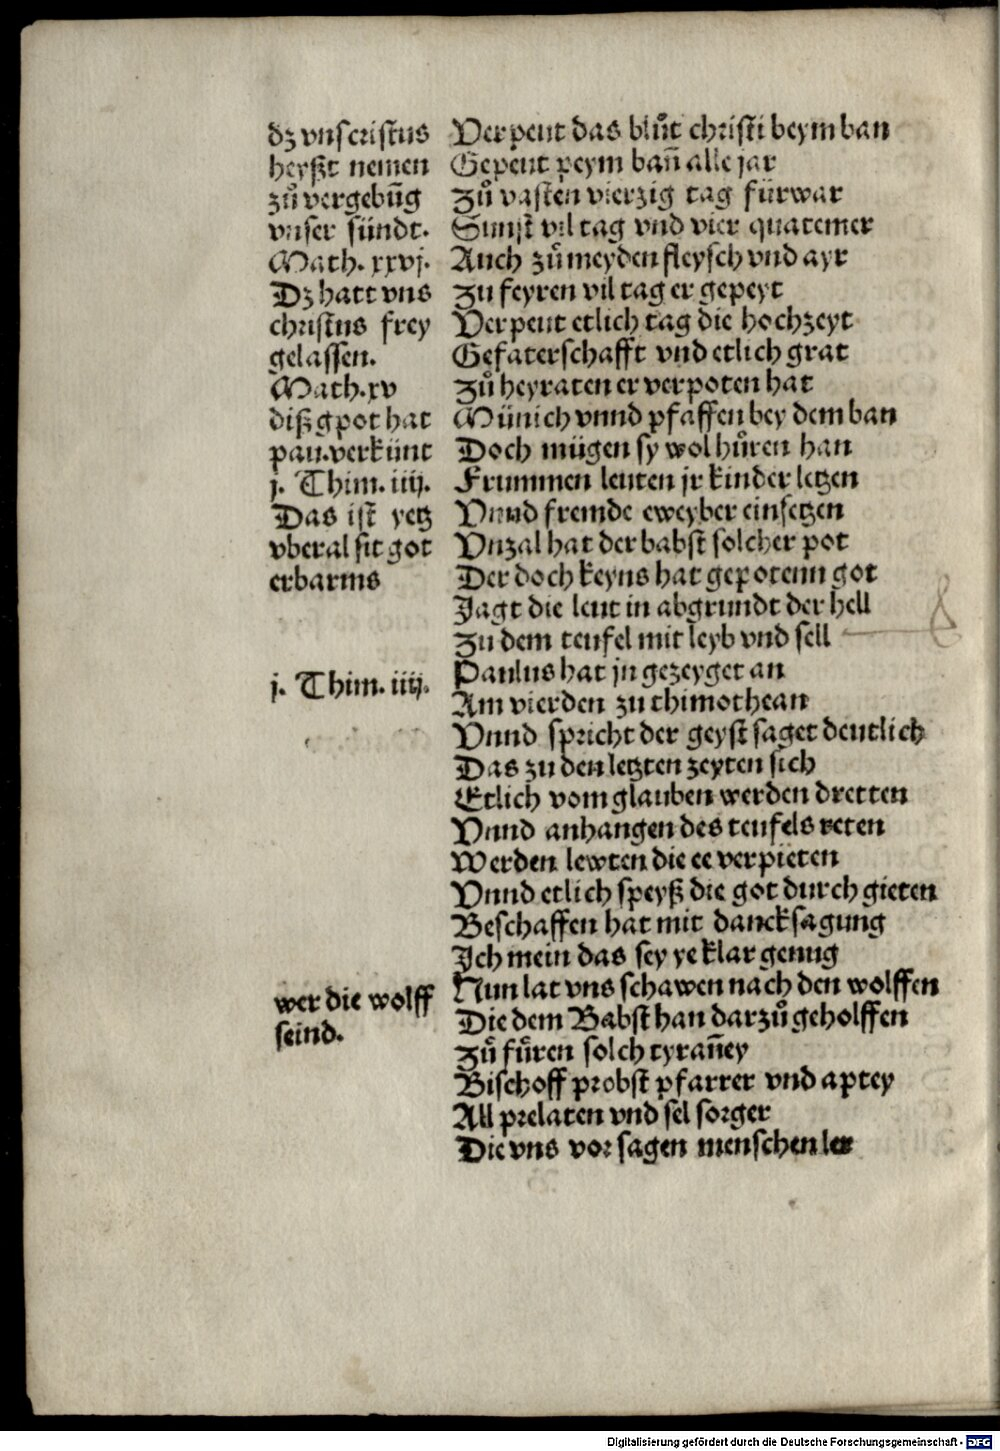 dz vns cristus
heyßt nemen
zů vergebũg
vnser sündt.
Math. xxvj.
Dz hatt vns
christus frey
gelassen.
Math. xv
diß gpot hat
pau. verkünt
j. Thim. iiij.
Das ist yetz
vberal sit got
erbarms
j. Thim. iiij.
wer die wolff
seind.
Verpeut das blůt christi beym ban
Gepeut peym bañ alle jar
Zů vasten vierzig tag fürwar
Sunst vil tag vnd vier quatemer
Auch zů meyden fleysch vnd ayr
Zu feyren vil tag er gepeyt
Verpeut etlich tag die hochzeyt
Gefaterschafft vnd etlich grat
Zů heyraten er verpoten hat
Münich vnnd pfaffen bey dem ban
Doch mügen sy wol hůren han
Frummen leuten jr kinder letzen
Vnnd fremde eweyber einsetzen
Vnzal hat der babst solcher pot
Der doch keyns hat gepotenn got
Jagt die leut in abgrundt der hell
Zu dem teufel mit leyb vnd sell
Paulus hat jn gezeyget an
Am vierden zu thimothean
Vnnd spricht der geyst saget deutlich
Das zu den letzten zeyten sich
Etlich vom glauben werden dretten
Vnnd anhangen des teufels reten
Werden lewten die ee verpieten
Vnnd etlich speyß die got durch gieten
Beschaffen hat mit dancksagung
Ich mein das sey ye klar genug
Nun lat vns schawen nach den wolffen
Die dem Babst han darzů geholffen
Zů fůren solch tyrañey
Bischoff probst pfarrer vnd aptey
All prelaten vnd sel sorger
Die vns vor sagen menschen ler
Digitalisierung gefördert durch die Deutsche Forschungsgemeinschaft - DFG